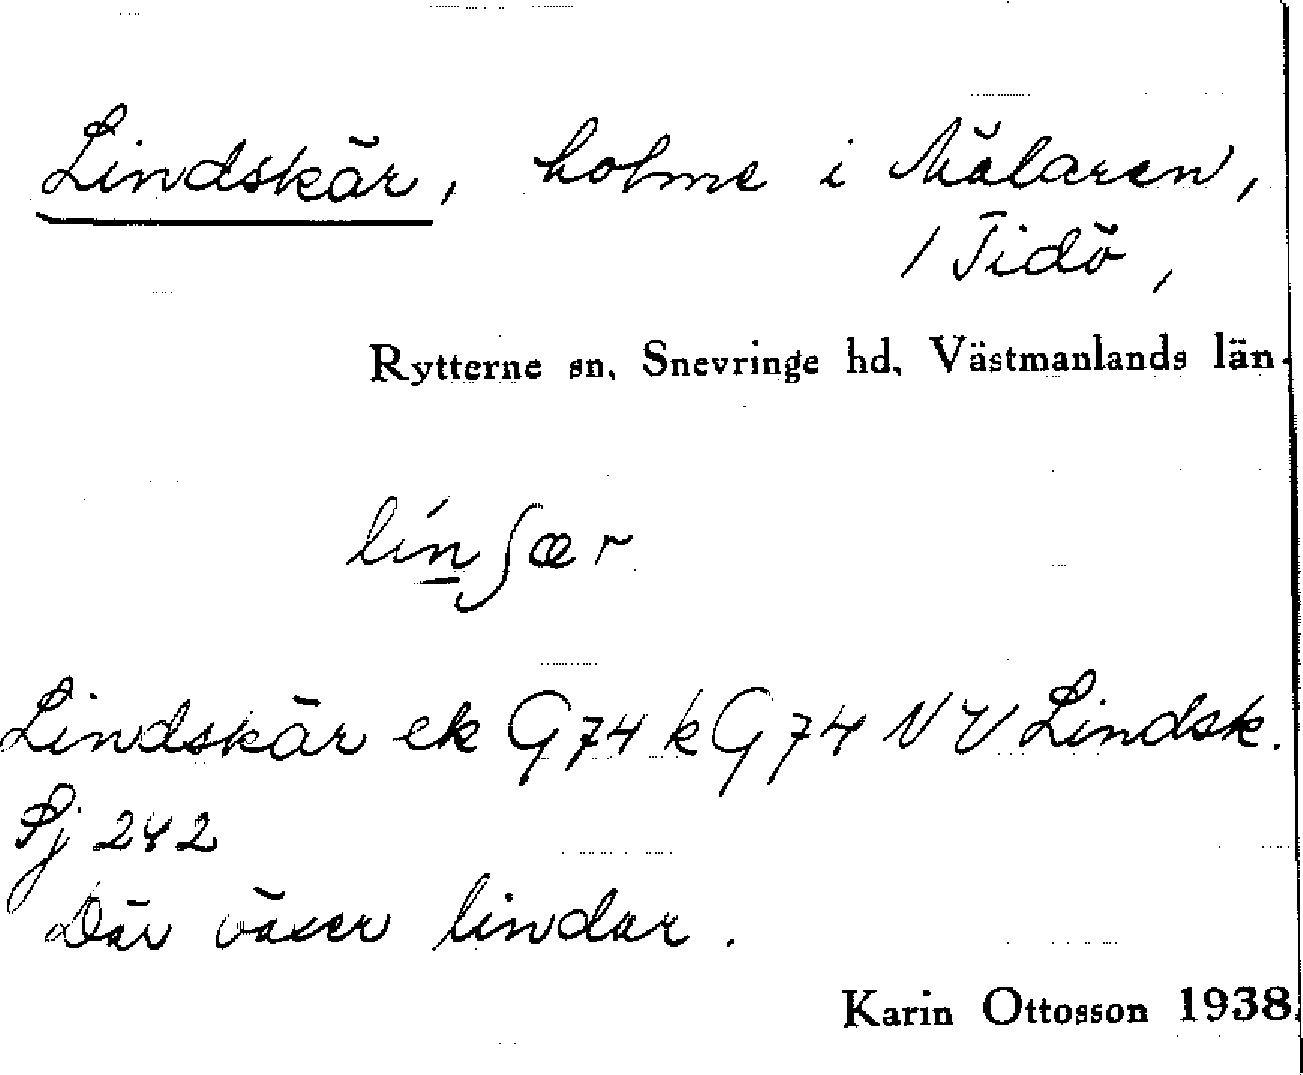 Lindskär, holme i Mälaren,
/ Tidö,
Rytterne sn, Snevringe hd, Västmanlands län.
lín ʃær
Lindskär ek G74 k G74 NV Lindsk.
Sj 242
Där växer lindar.
Karin Ottosson 1938.